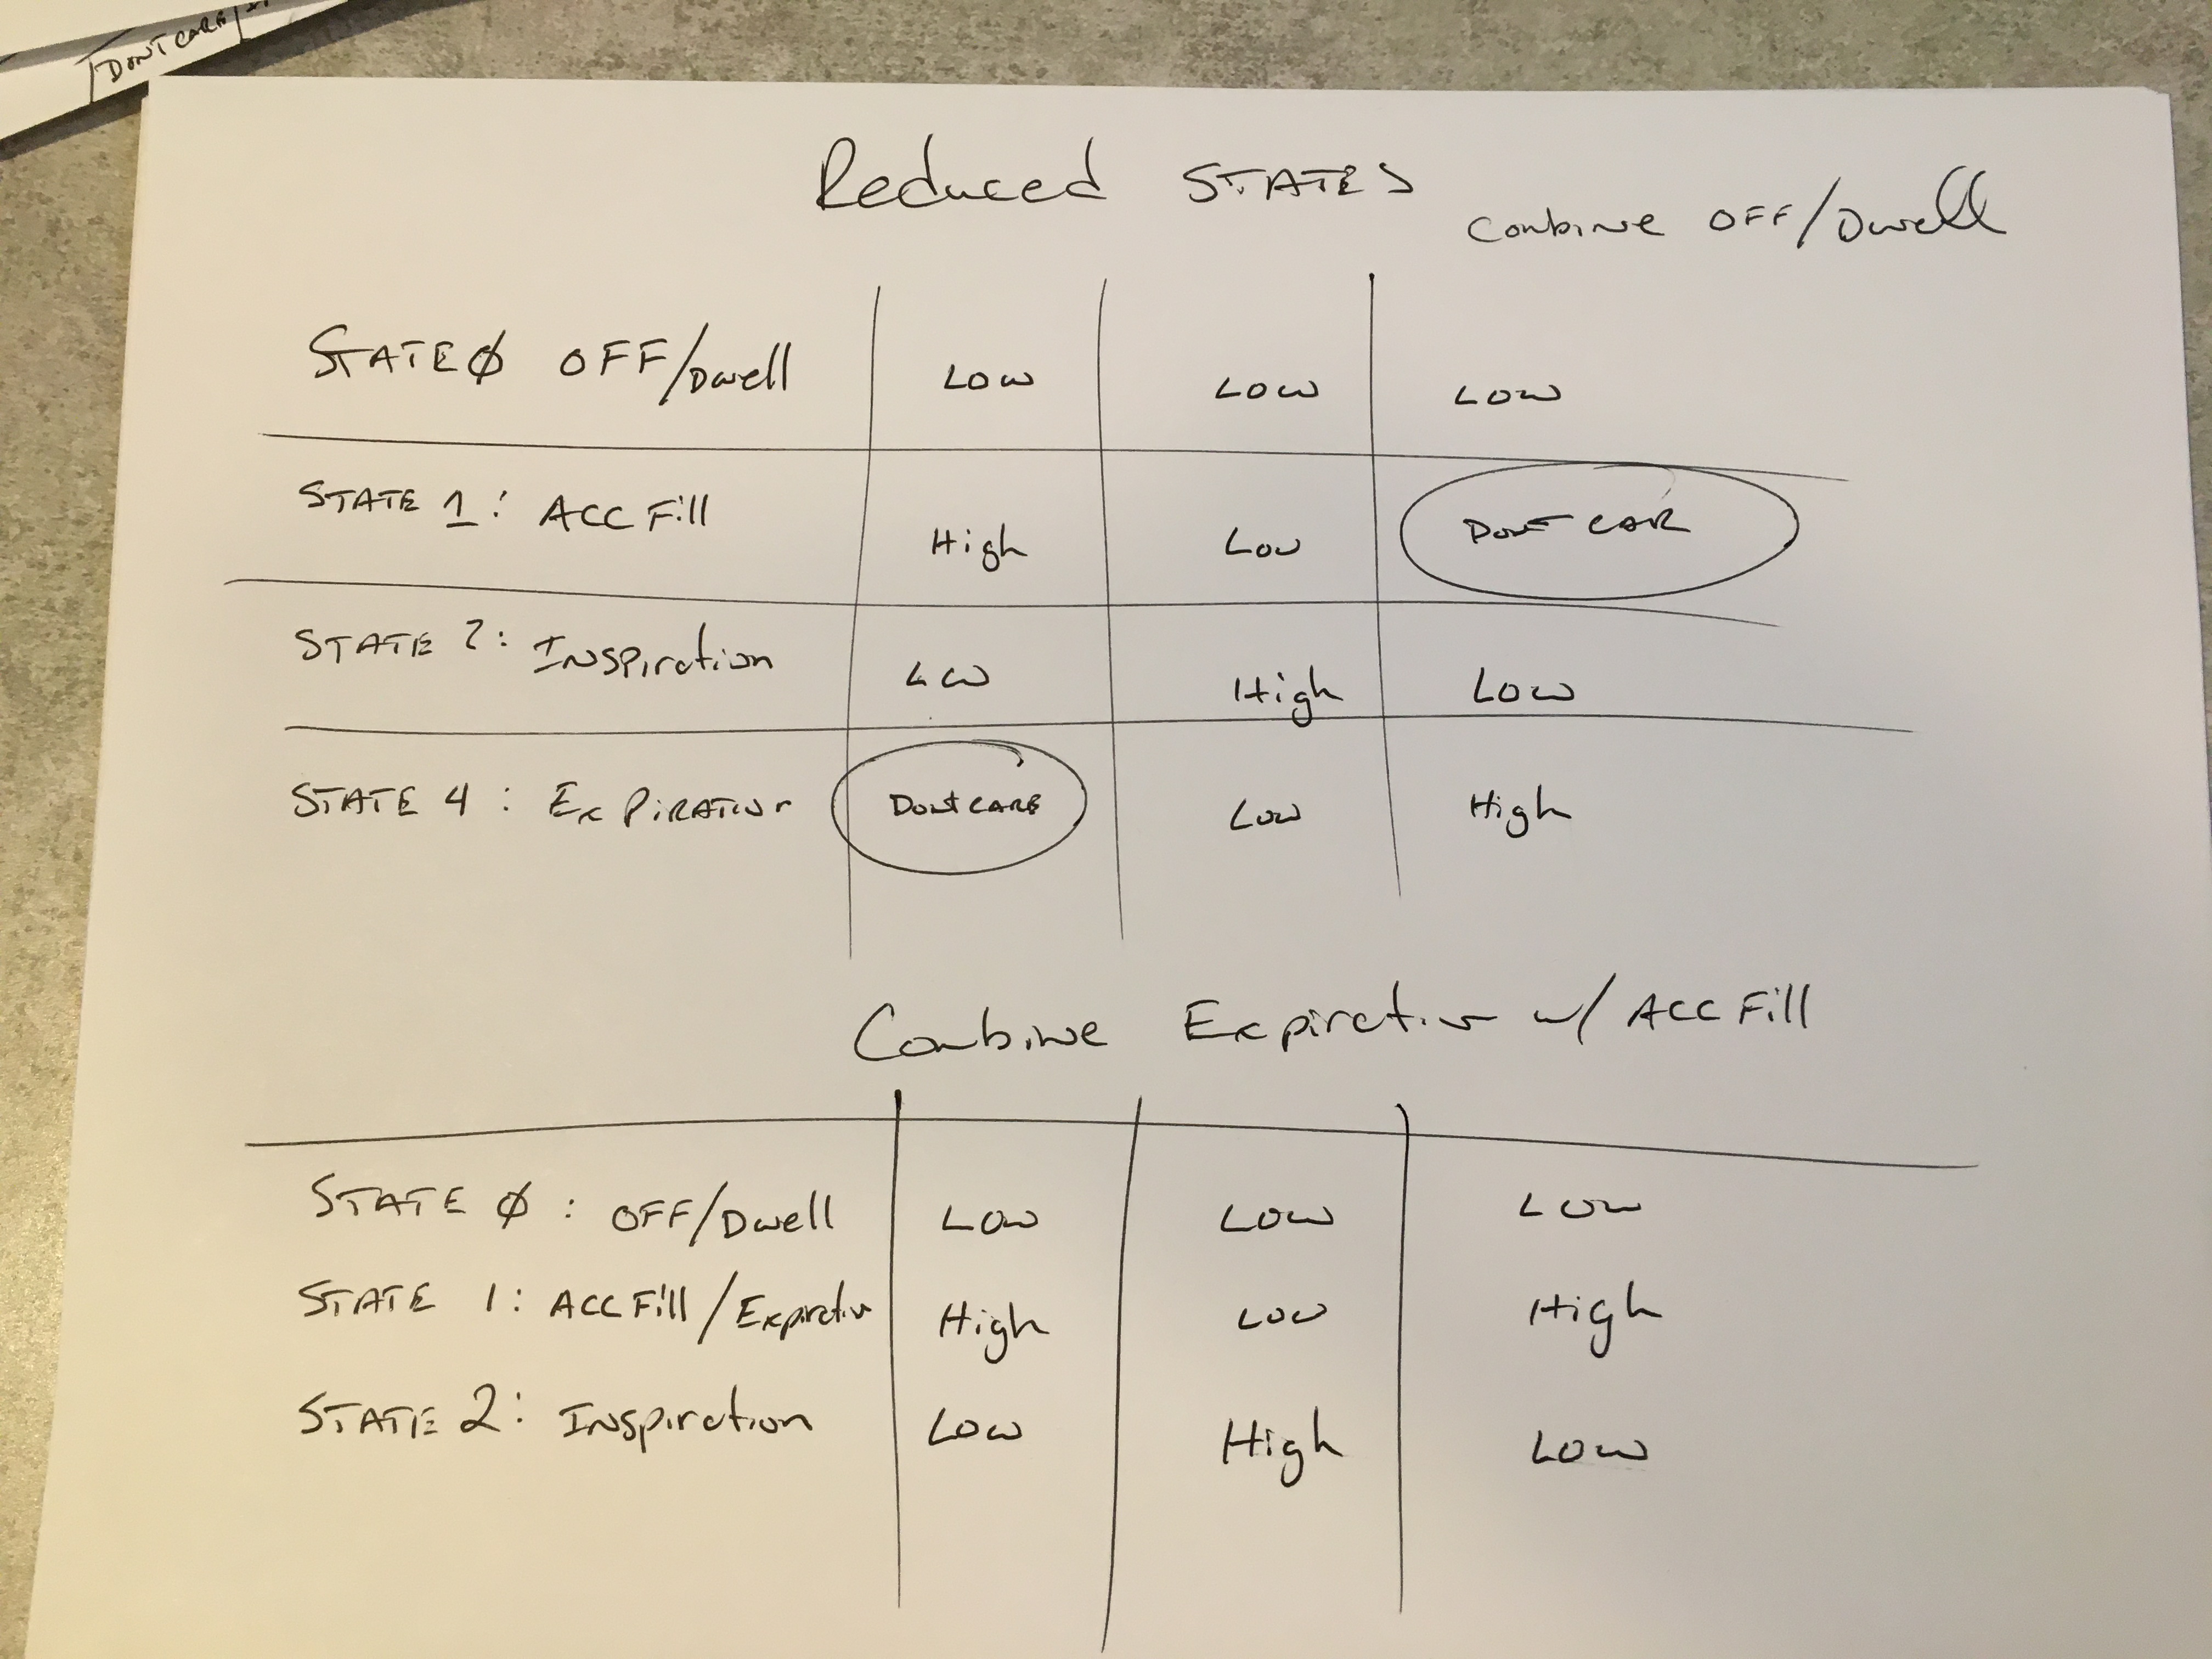 Reduced STATES combine OFF/Dwell
STATE Ø OFF/Dwell Low Low Low
STATE 1: ACC Fill High Low Dont care
STATE 2: Inspiration Low High Low
STATE 4: ExPiRATion Dont care Low High
Combine Expiration w/ ACC Fill
STATE Ø: OFF/Dwell Low Low Low
STATE 1: ACC Fill/Expiration High Low High
STATE 2: Inspiration Low High Low
DONT CARE